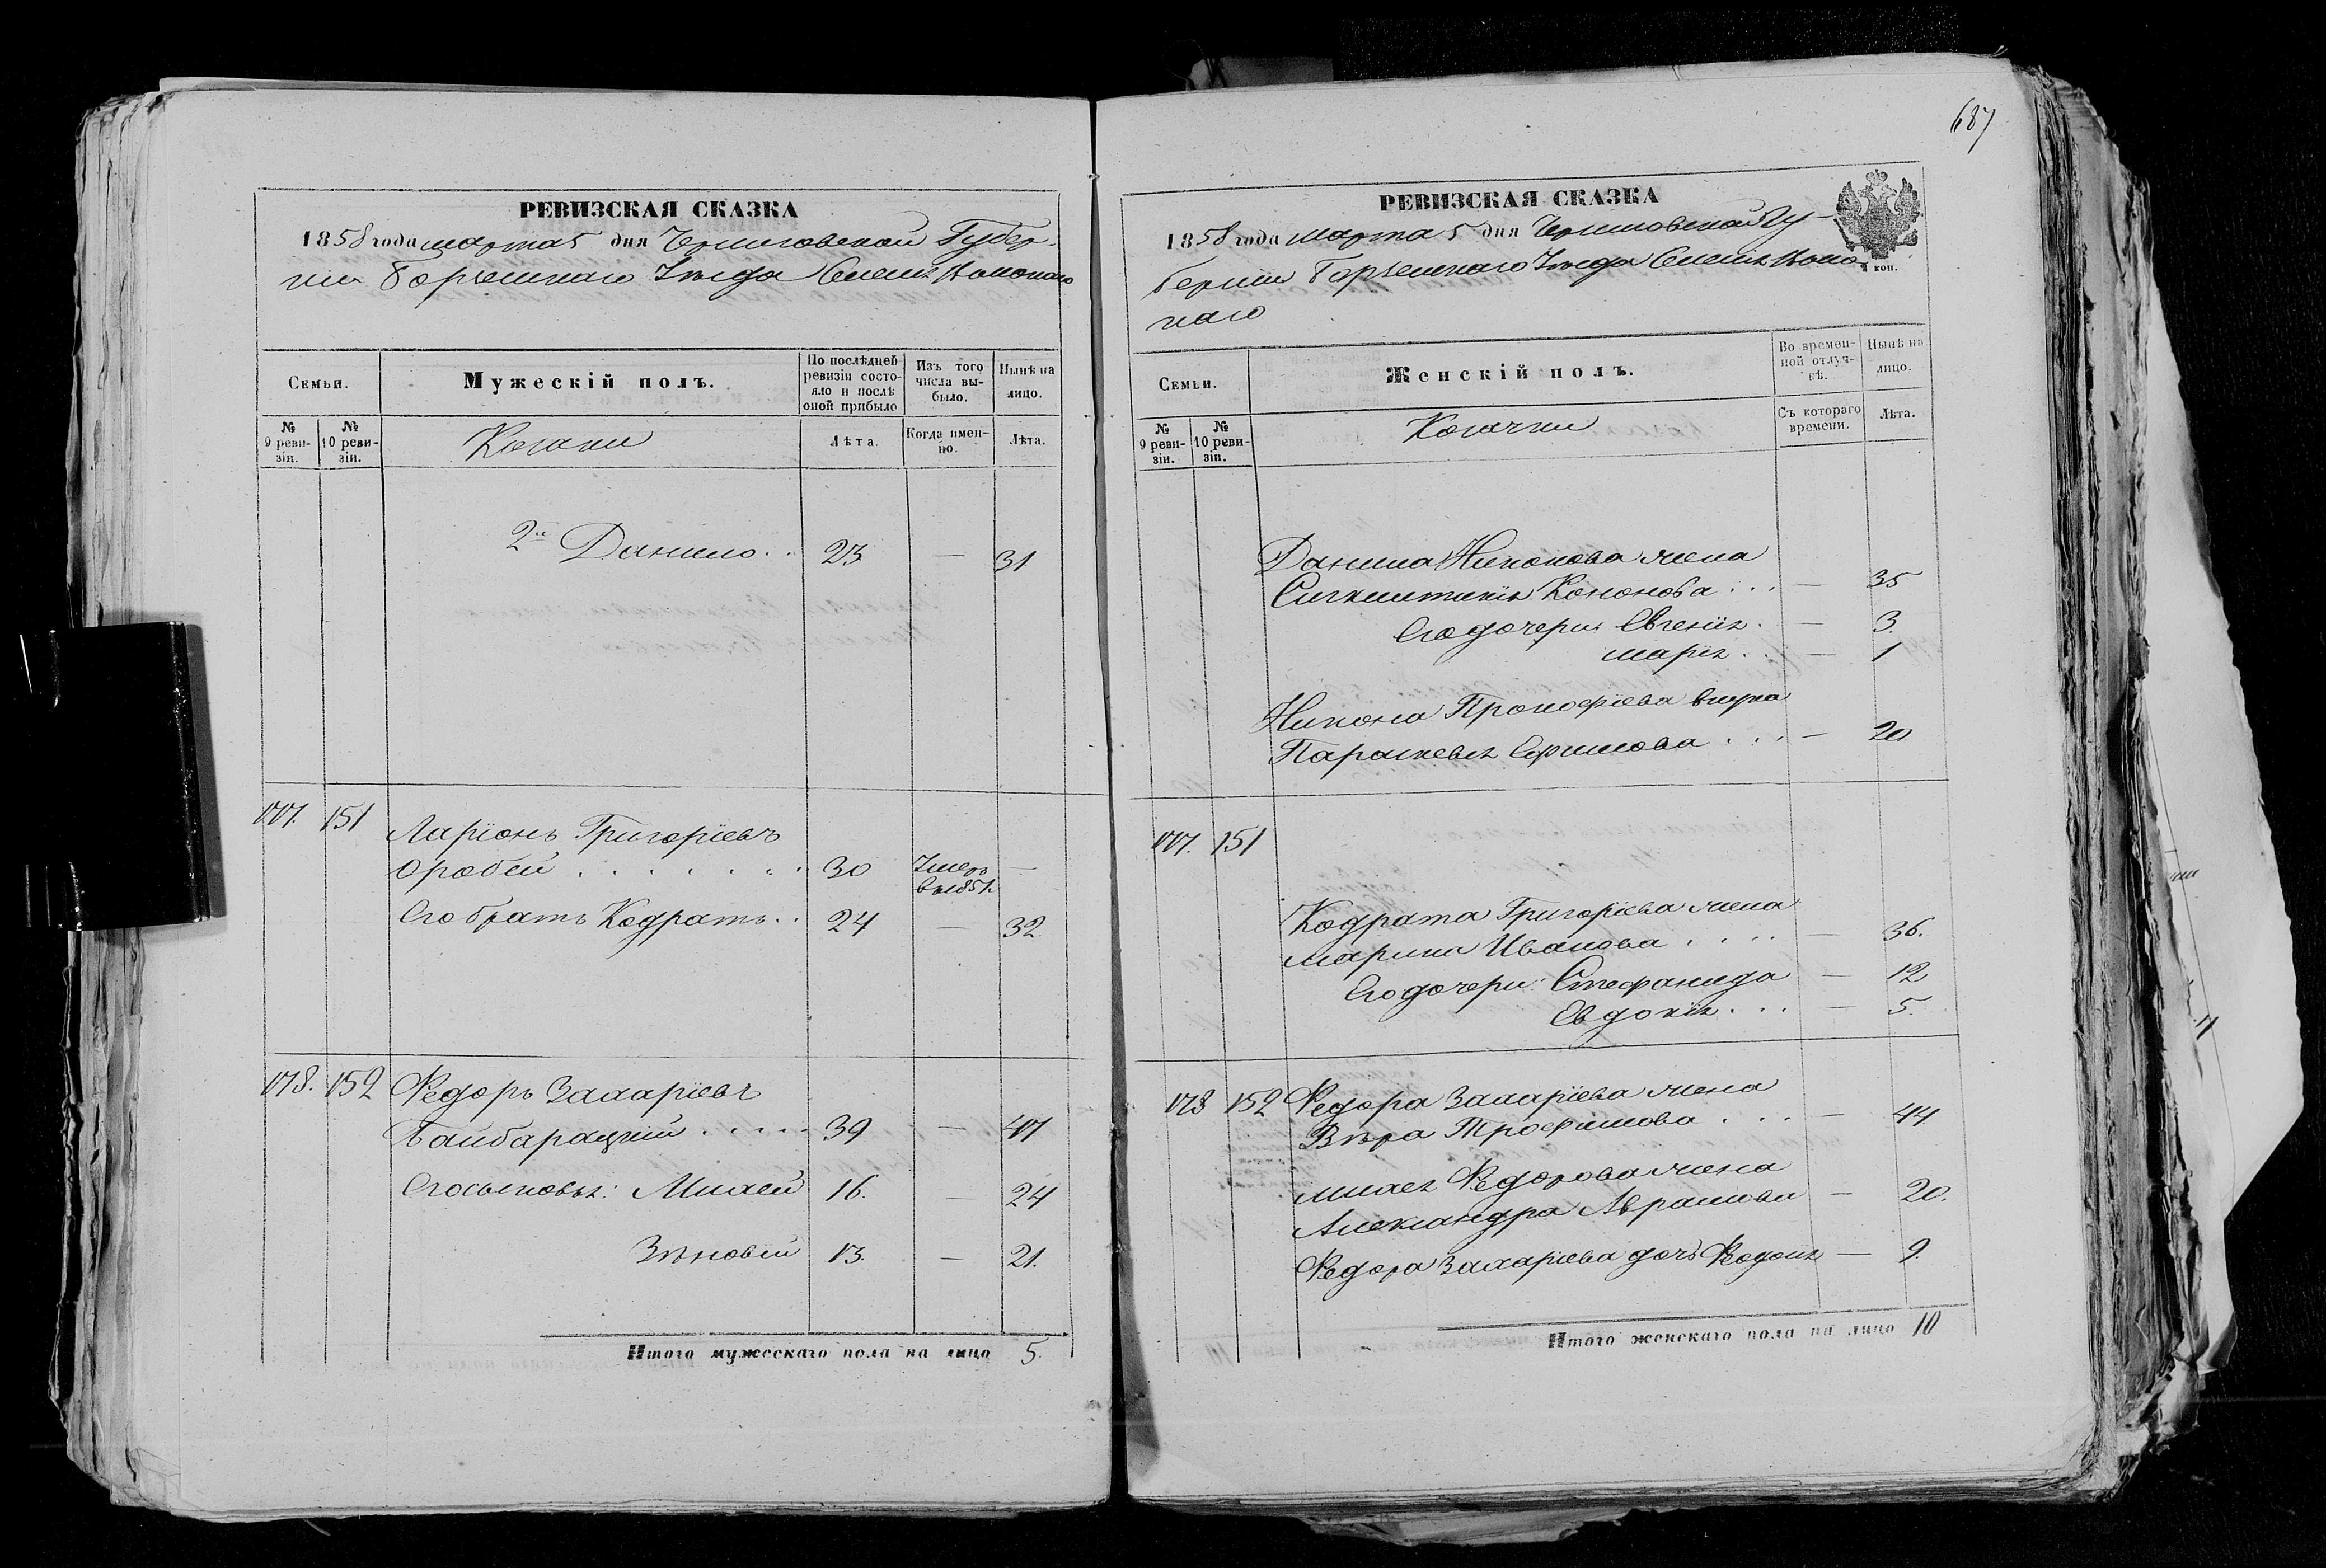 РЕВИЗСКАЯ СКАЗКА
1858 года марта 5 дня Черниговской Губер-
нии Борзенскаго Уезда
Семьи.
Мужескій полъ.
По послѣдней ревизіи состояло и послѣ оной прибыло
Изъ того числа выбыло.
Нынѣ на лицо.
№ 9 ревизіи.
№ 10 ревизіи.
Козаки
Лѣта.
Когда именно.
Лѣта.
2й Данило . . 23 — 31
177. 151 Ларіонъ Григоріевъ
Оробей . . . . . . . 30 Умеръ въ 1851. —
Его братъ Кодратъ . . 24 — 32.
178. 152 Федоръ Захаріевъ
Байбарацкий . . . . . 39 — 47
Его сыновья: Михей 16. — 24
Зѣновій 13. — 21.
Итого мужескаго пола на лицо 5.
687
РЕВИЗСКАЯ СКАЗКА
1858 года марта 5 дня Черниговской Гу-
берніи Борзенскаго Уезда
наго
4 коп.
Семьи.
Женскій полъ.
Во временной отлучкѣ.
Нынѣ на лицо.
№ 9 ревизіи.
№ 10 ревизіи.
Козачки
Съ котораго времени.
Лѣта.
Данила Никонова жена
Кононова . . . — 35
Его дочери Євгенія . — 3.
Марія . . — 1
Никона Прокофіева внука
Параскевія Ефимова . . . — 20
177. 151
Кодрата Григоріева жена
Марина Иванова . . . . — 36.
Его дочери: Стефанида — 12
Евдокія . . . — 5.
178 152 Федора Захаріева жена
Вѣра Трофимова . . . — 44
Михея Федорова жена
Александра Аврамова — 20.
Федора Захаріева дочь — 9.
Итого женскаго пола на лицо 10